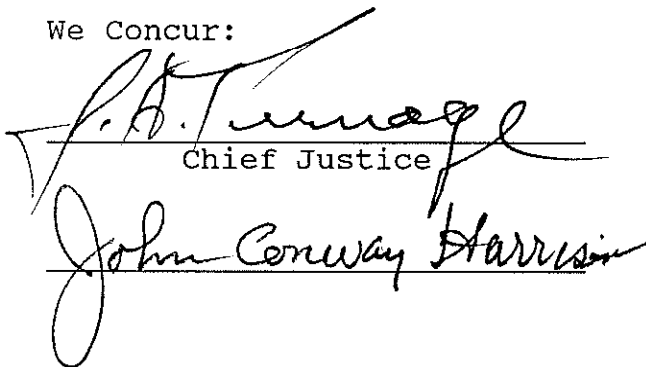 We Concur:
J. A. Turnage
Chief Justice
John Conway Harrison